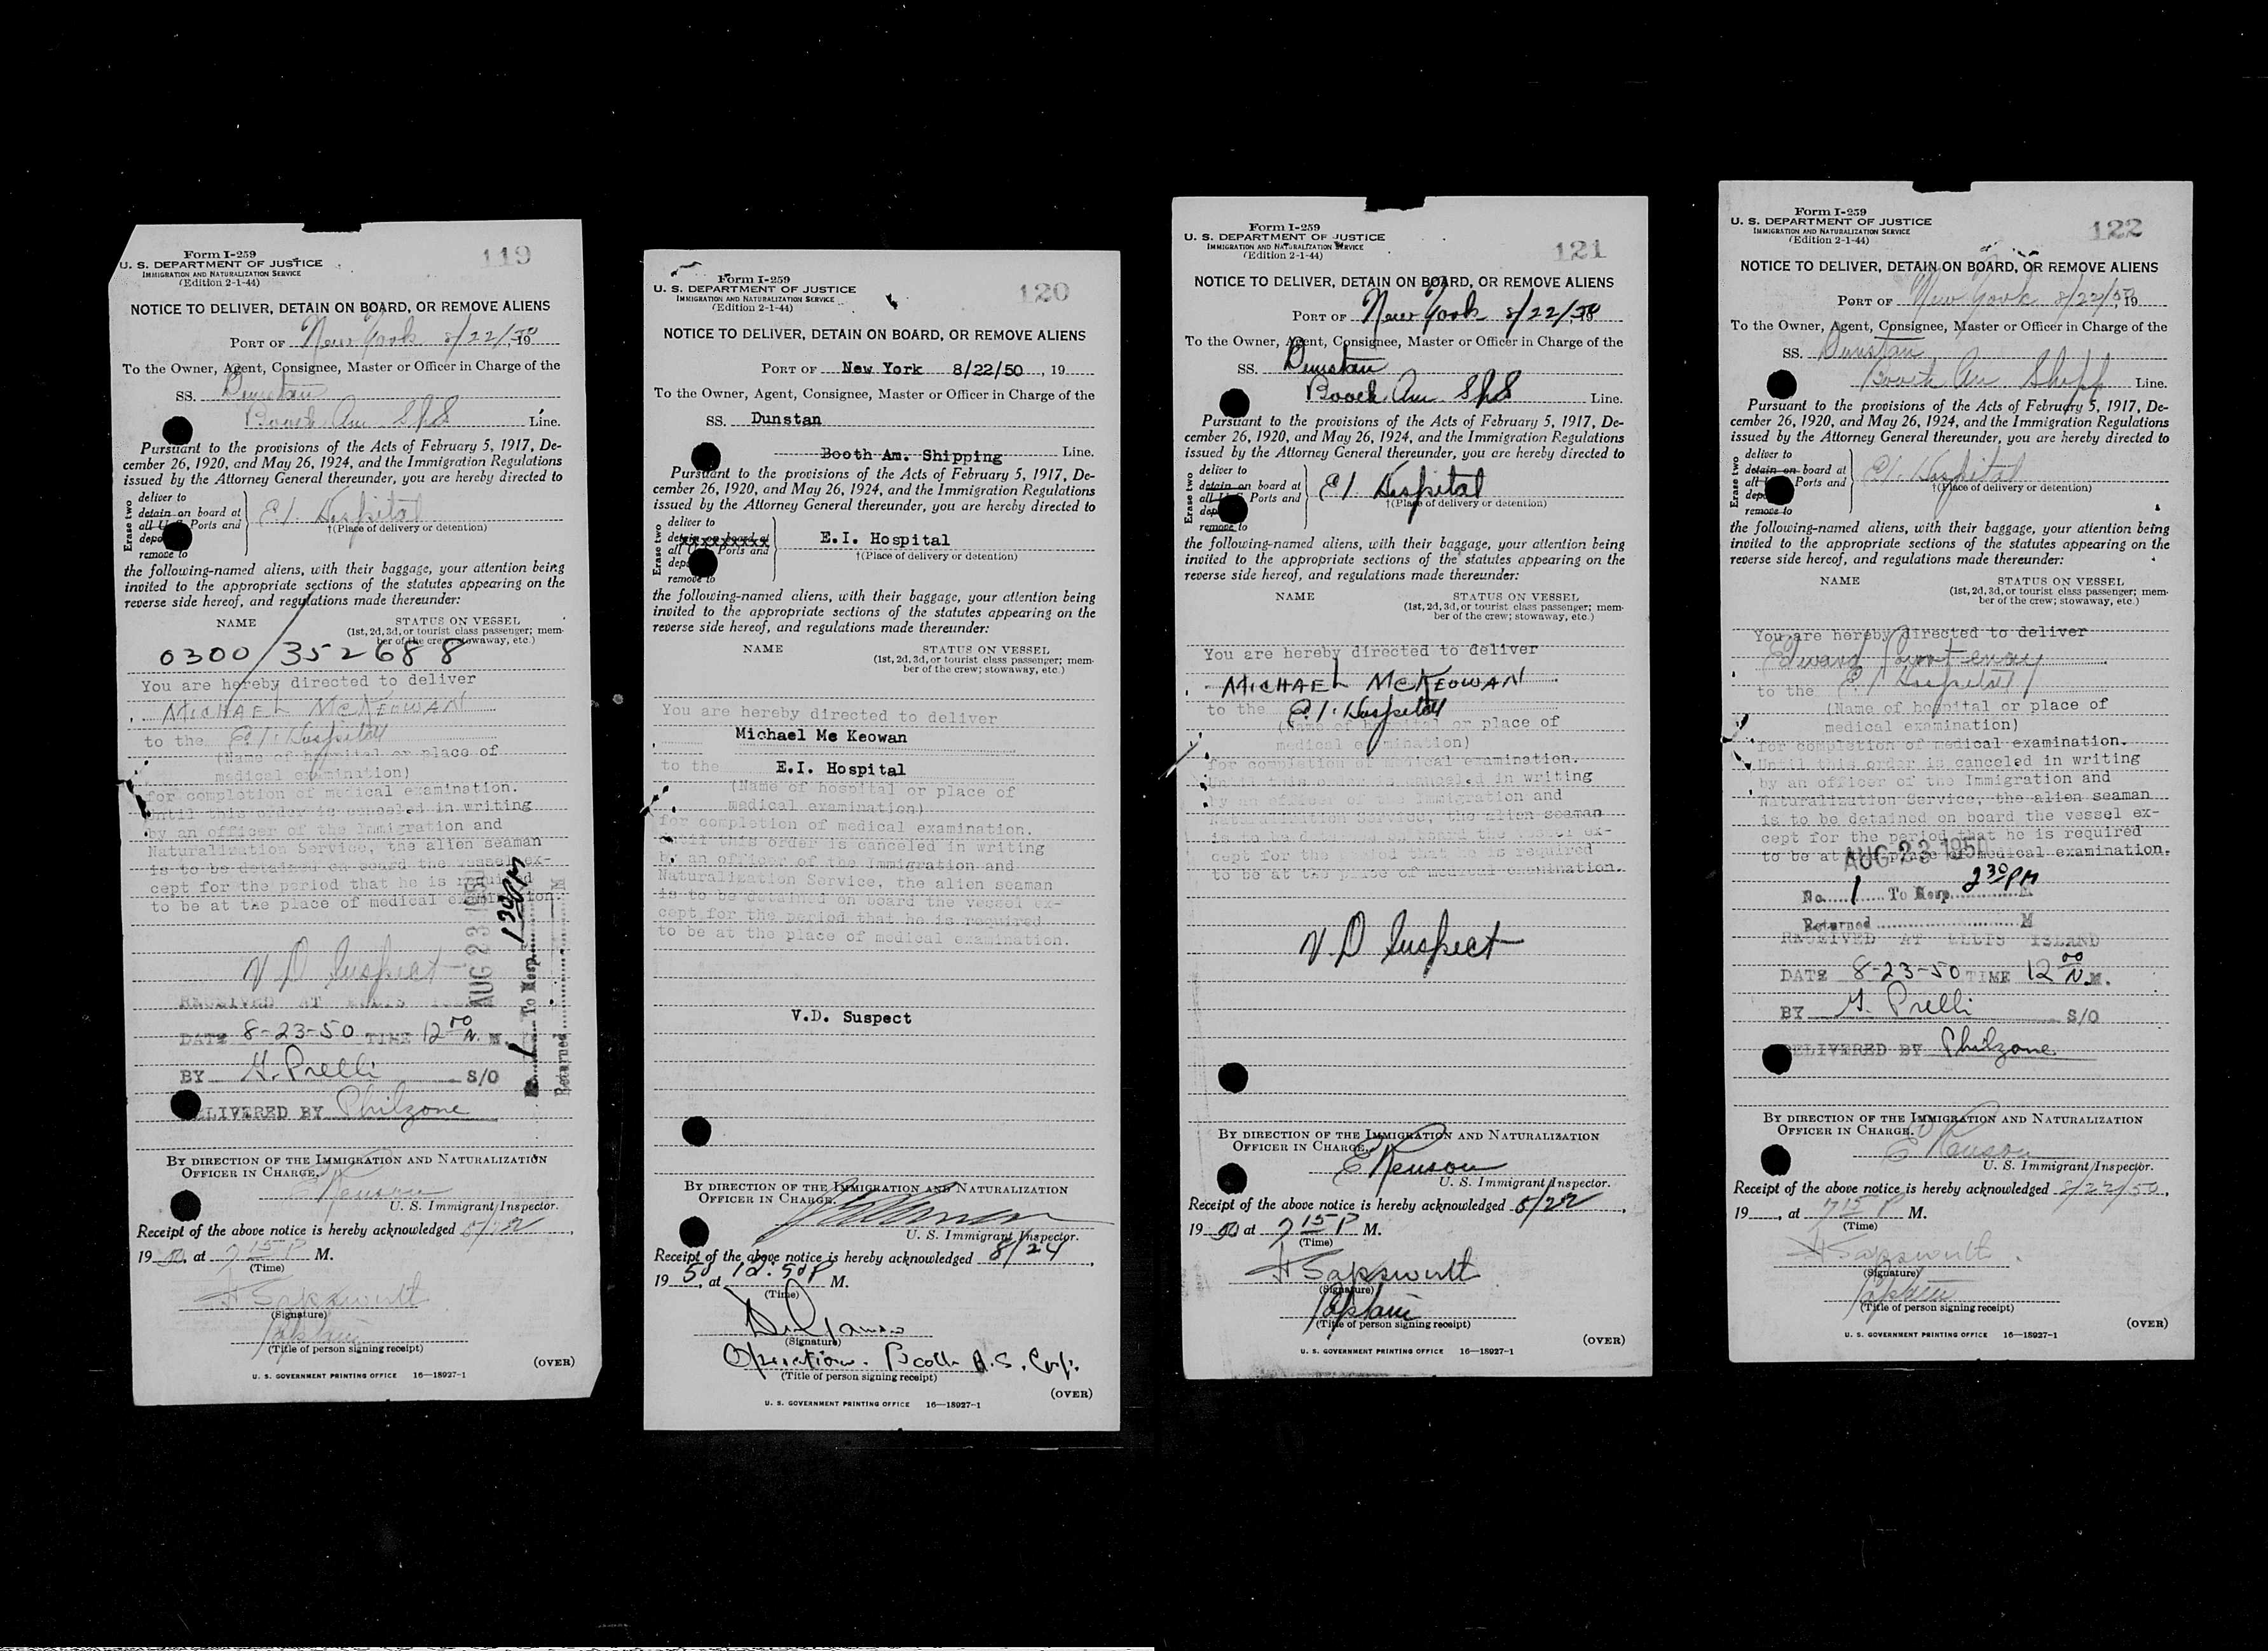 119
Form I-259
U. S. DEPARTMENT OF JUSTICE
IMMIGRATION AND NATURALIZATION SERVICE
(Edition 2-1-44)
NOTICE TO DELIVER, DETAIN ON BOARD, OR REMOVE ALIENS
PORT OF New York 8/22/50, 19
To the Owner, Agent, Consignee, Master or Officer in Charge of the
SS. Dunstan
Booth Am. Sh&S Line.
Pursuant to the provisions of the Acts of February 5, 1917, De-
cember 26, 1920, and May 26, 1924, and the Immigration Regulations
issued by the Attorney General thereunder, you are hereby directed to
Erase two
deliver to
detain on board at
all U.S. Ports and
depo
remove to
E.I. Hospital
†(Place of delivery or detention)
the following-named aliens, with their baggage, your attention being
invited to the appropriate sections of the statutes appearing on the
reverse side hereof, and regulations made thereunder:
NAME STATUS ON VESSEL
(1st, 2d, 3d, or tourist class passenger; mem-
ber of the crew; stowaway, etc.)
0300/352688
You are hereby directed to deliver
MICHAEL MCKEOWAN
to the E.I. Hospital
(Name of hospital or place of
medical examination)
for completion of medical examination.
Until this order is canceled in writing
by an officer of the Immigration and
Naturalization Service, the alien seaman
is to be detained on board the vessel ex-
cept for the period that he is required
to be at the place of medical examination.
V.D Suspect
RECEIVED AT ELLIS ISLAND
DATE 8-23-50 TIME 12 00 N. M.
BY H. Prelli S/O
DELIVERED BY Philzone
AUG 23 1950
1 To Hosp. 1 30 PM
Returned M
BY DIRECTION OF THE IMMIGRATION AND NATURALIZATION
OFFICER IN CHARGE.
E Renson
U. S. Immigrant Inspector.
Receipt of the above notice is hereby acknowledged 8/22,
19 50, at 7 15 P M.
(Time)
H Sapsworth
(Signature)
Captain
(Title of person signing receipt)
(OVER)
U. S. GOVERNMENT PRINTING OFFICE 16—18927-1
120
Form I-259
U. S. DEPARTMENT OF JUSTICE
IMMIGRATION AND NATURALIZATION SERVICE
(Edition 2-1-44)
NOTICE TO DELIVER, DETAIN ON BOARD, OR REMOVE ALIENS
PORT OF New York 8/22/50, 19
To the Owner, Agent, Consignee, Master or Officer in Charge of the
SS. Dunstan
Booth Am. Shipping Line.
Pursuant to the provisions of the Acts of February 5, 1917, De-
cember 26, 1920, and May 26, 1924, and the Immigration Regulations
issued by the Attorney General thereunder, you are hereby directed to
Erase two
deliver to
detain on board at
all Ports and
depo
remove to
E.I. Hospital
†(Place of delivery or detention)
the following-named aliens, with their baggage, your attention being
invited to the appropriate sections of the statutes appearing on the
reverse side hereof, and regulations made thereunder:
NAME STATUS ON VESSEL
(1st, 2d, 3d, or tourist class passenger; mem-
ber of the crew; stowaway, etc.)
You are hereby directed to deliver
Michael Mc Keowan
to the E.I. Hospital
(Name of hospital or place of
medical examination)
for completion of medical examination.
Until this order is canceled in writing
by an officer of the Immigration and
Naturalization Service, the alien seaman
is to be detained on board the vessel ex-
cept for the period that he is required
to be at the place of medical examination.
V.D. Suspect
BY DIRECTION OF THE IMMIGRATION AND NATURALIZATION
OFFICER IN CHARGE.
U. S. Immigrant Inspector.
Receipt of the above notice is hereby acknowledged 8/24,
19 50, at 12:50 P M.
(Time)
(Signature)
Operations. Booth A.S. Corp.
(Title of person signing receipt)
(OVER)
U. S. GOVERNMENT PRINTING OFFICE 16—18927-1
121
Form I-259
U. S. DEPARTMENT OF JUSTICE
IMMIGRATION AND NATURALIZATION SERVICE
(Edition 2-1-44)
NOTICE TO DELIVER, DETAIN ON BOARD, OR REMOVE ALIENS
PORT OF New York 8/22/50, 19
To the Owner, Agent, Consignee, Master or Officer in Charge of the
SS. Dunstan
Booth Am. Sh&S Line.
Pursuant to the provisions of the Acts of February 5, 1917, De-
cember 26, 1920, and May 26, 1924, and the Immigration Regulations
issued by the Attorney General thereunder, you are hereby directed to
Erase two
deliver to
detain on board at
all U.S. Ports and
dep
remove to
E.I. Hospital
†(Place of delivery or detention)
the following-named aliens, with their baggage, your attention being
invited to the appropriate sections of the statutes appearing on the
reverse side hereof, and regulations made thereunder:
NAME STATUS ON VESSEL
(1st, 2d, 3d, or tourist class passenger; mem-
ber of the crew; stowaway, etc.)
You are hereby directed to deliver
MICHAEL MCKEOWAN
to the E.I. Hospital
(Name of hospital or place of
medical examination)
for completion of medical examination.
Until this order is canceled in writing
by an officer of the Immigration and
Naturalization Service, the alien seaman
is to be detained on board the vessel ex-
cept for the period that he is required
to be at the place of medical examination.
V.D Suspect
BY DIRECTION OF THE IMMIGRATION AND NATURALIZATION
OFFICER IN CHARGE.
E Renson
U. S. Immigrant Inspector.
Receipt of the above notice is hereby acknowledged 8/22,
19 50, at 7 15 P M.
(Time)
H Sapsworth
(Signature)
Captain
(Title of person signing receipt)
(OVER)
U. S. GOVERNMENT PRINTING OFFICE 16—18927-1
122
Form I-259
U. S. DEPARTMENT OF JUSTICE
IMMIGRATION AND NATURALIZATION SERVICE
(Edition 2-1-44)
NOTICE TO DELIVER, DETAIN ON BOARD, OR REMOVE ALIENS
PORT OF New York 8/22/50, 19
To the Owner, Agent, Consignee, Master or Officer in Charge of the
SS. Dunstan
Booth Am Shipp Line.
Pursuant to the provisions of the Acts of February 5, 1917, De-
cember 26, 1920, and May 26, 1924, and the Immigration Regulations
issued by the Attorney General thereunder, you are hereby directed to
Erase two
deliver to
detain on board at
all Ports and
depo
remove to
E.I. Hospital
†(Place of delivery or detention)
the following-named aliens, with their baggage, your attention being
invited to the appropriate sections of the statutes appearing on the
reverse side hereof, and regulations made thereunder:
NAME STATUS ON VESSEL
(1st, 2d, 3d, or tourist class passenger; mem-
ber of the crew; stowaway, etc.)
You are hereby directed to deliver
Edward Courtenay
to the E.I Hospital
(Name of hospital or place of
medical examination)
for completion of medical examination.
Until this order is canceled in writing
by an officer of the Immigration and
Naturalization Service, the alien seaman
is to be detained on board the vessel ex-
cept for the period that he is required
to be at the place of medical examination.
AUG 23 1950
No. 1 To Hosp. 2 30 PM M
Returned M
RECEIVED AT ELLIS ISLAND
DATE 8-23-50 TIME 12 00 N. M.
BY H. Prelli S/O
DELIVERED BY Philzone
BY DIRECTION OF THE IMMIGRATION AND NATURALIZATION
OFFICER IN CHARGE.
E Renson
U. S. Immigrant Inspector.
Receipt of the above notice is hereby acknowledged 8/22/50,
19, at 7 15 P M.
(Time)
H Sapsworth
(Signature)
Captain
(Title of person signing receipt)
(OVER)
U. S. GOVERNMENT PRINTING OFFICE 16—18927-1